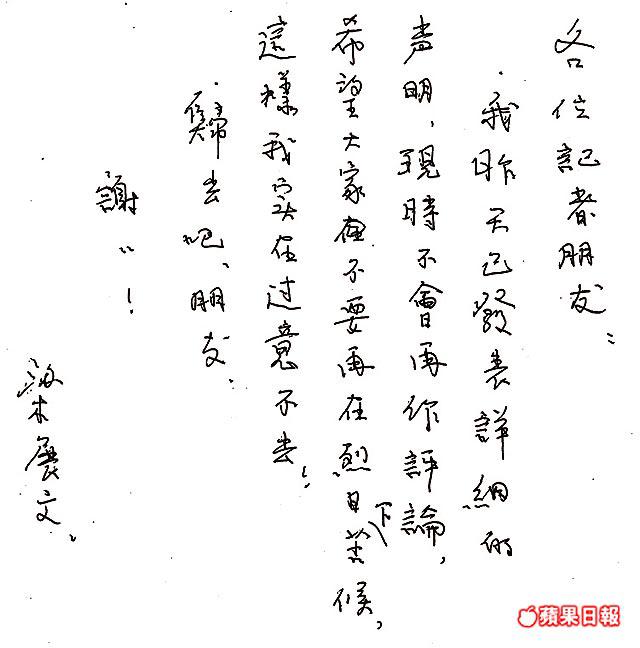 各位記者朋友：
．我昨天已發表詳細的
声明，現時不會再作評論，
希望大家在不要再在烈日下苦候，
這様我实在过意不去！
．歸去吧、朋友．
謝〃！
梁展文、
蘋果日報